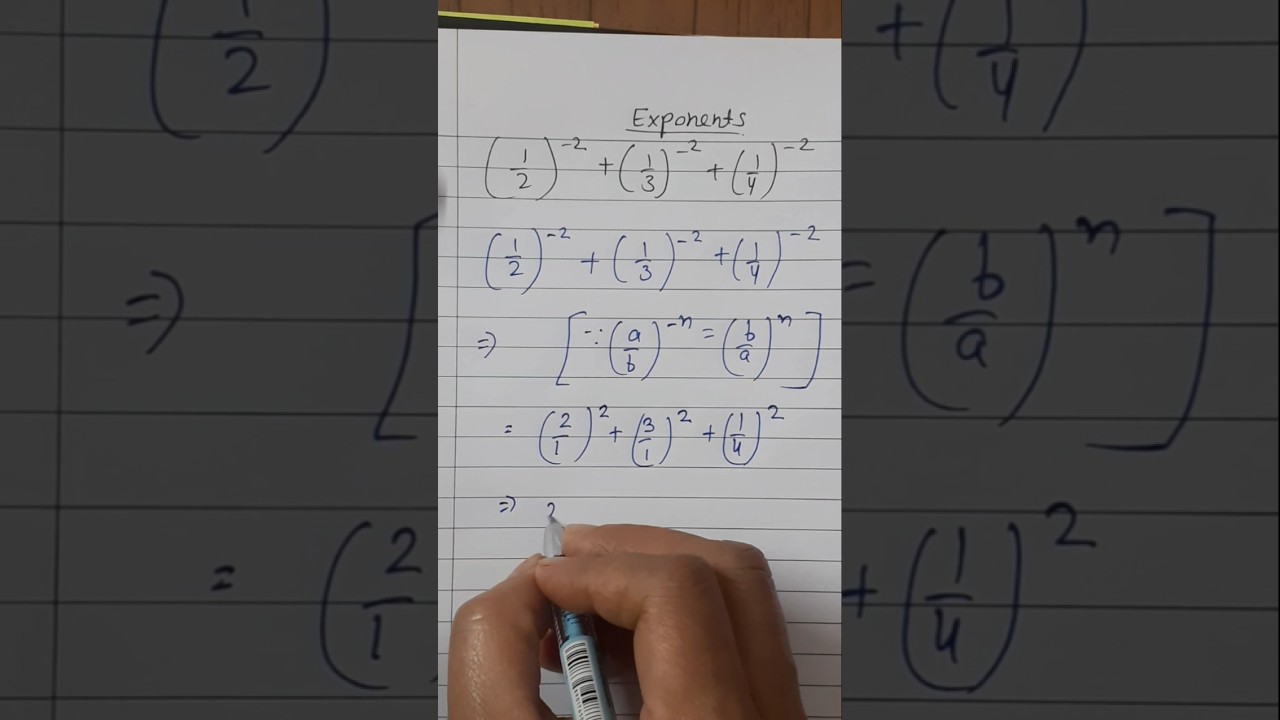 Exponents
(1/2)^-2 + (1/3)^-2 + (1/4)^-2
(1/2)^-2 + (1/3)^-2 + (1/4)^-2
⇒ [∵ (a/b)^-n = (b/a)^n]
= (2/1)^2 + (3/1)^2 + (1/4)^2
⇒ 2